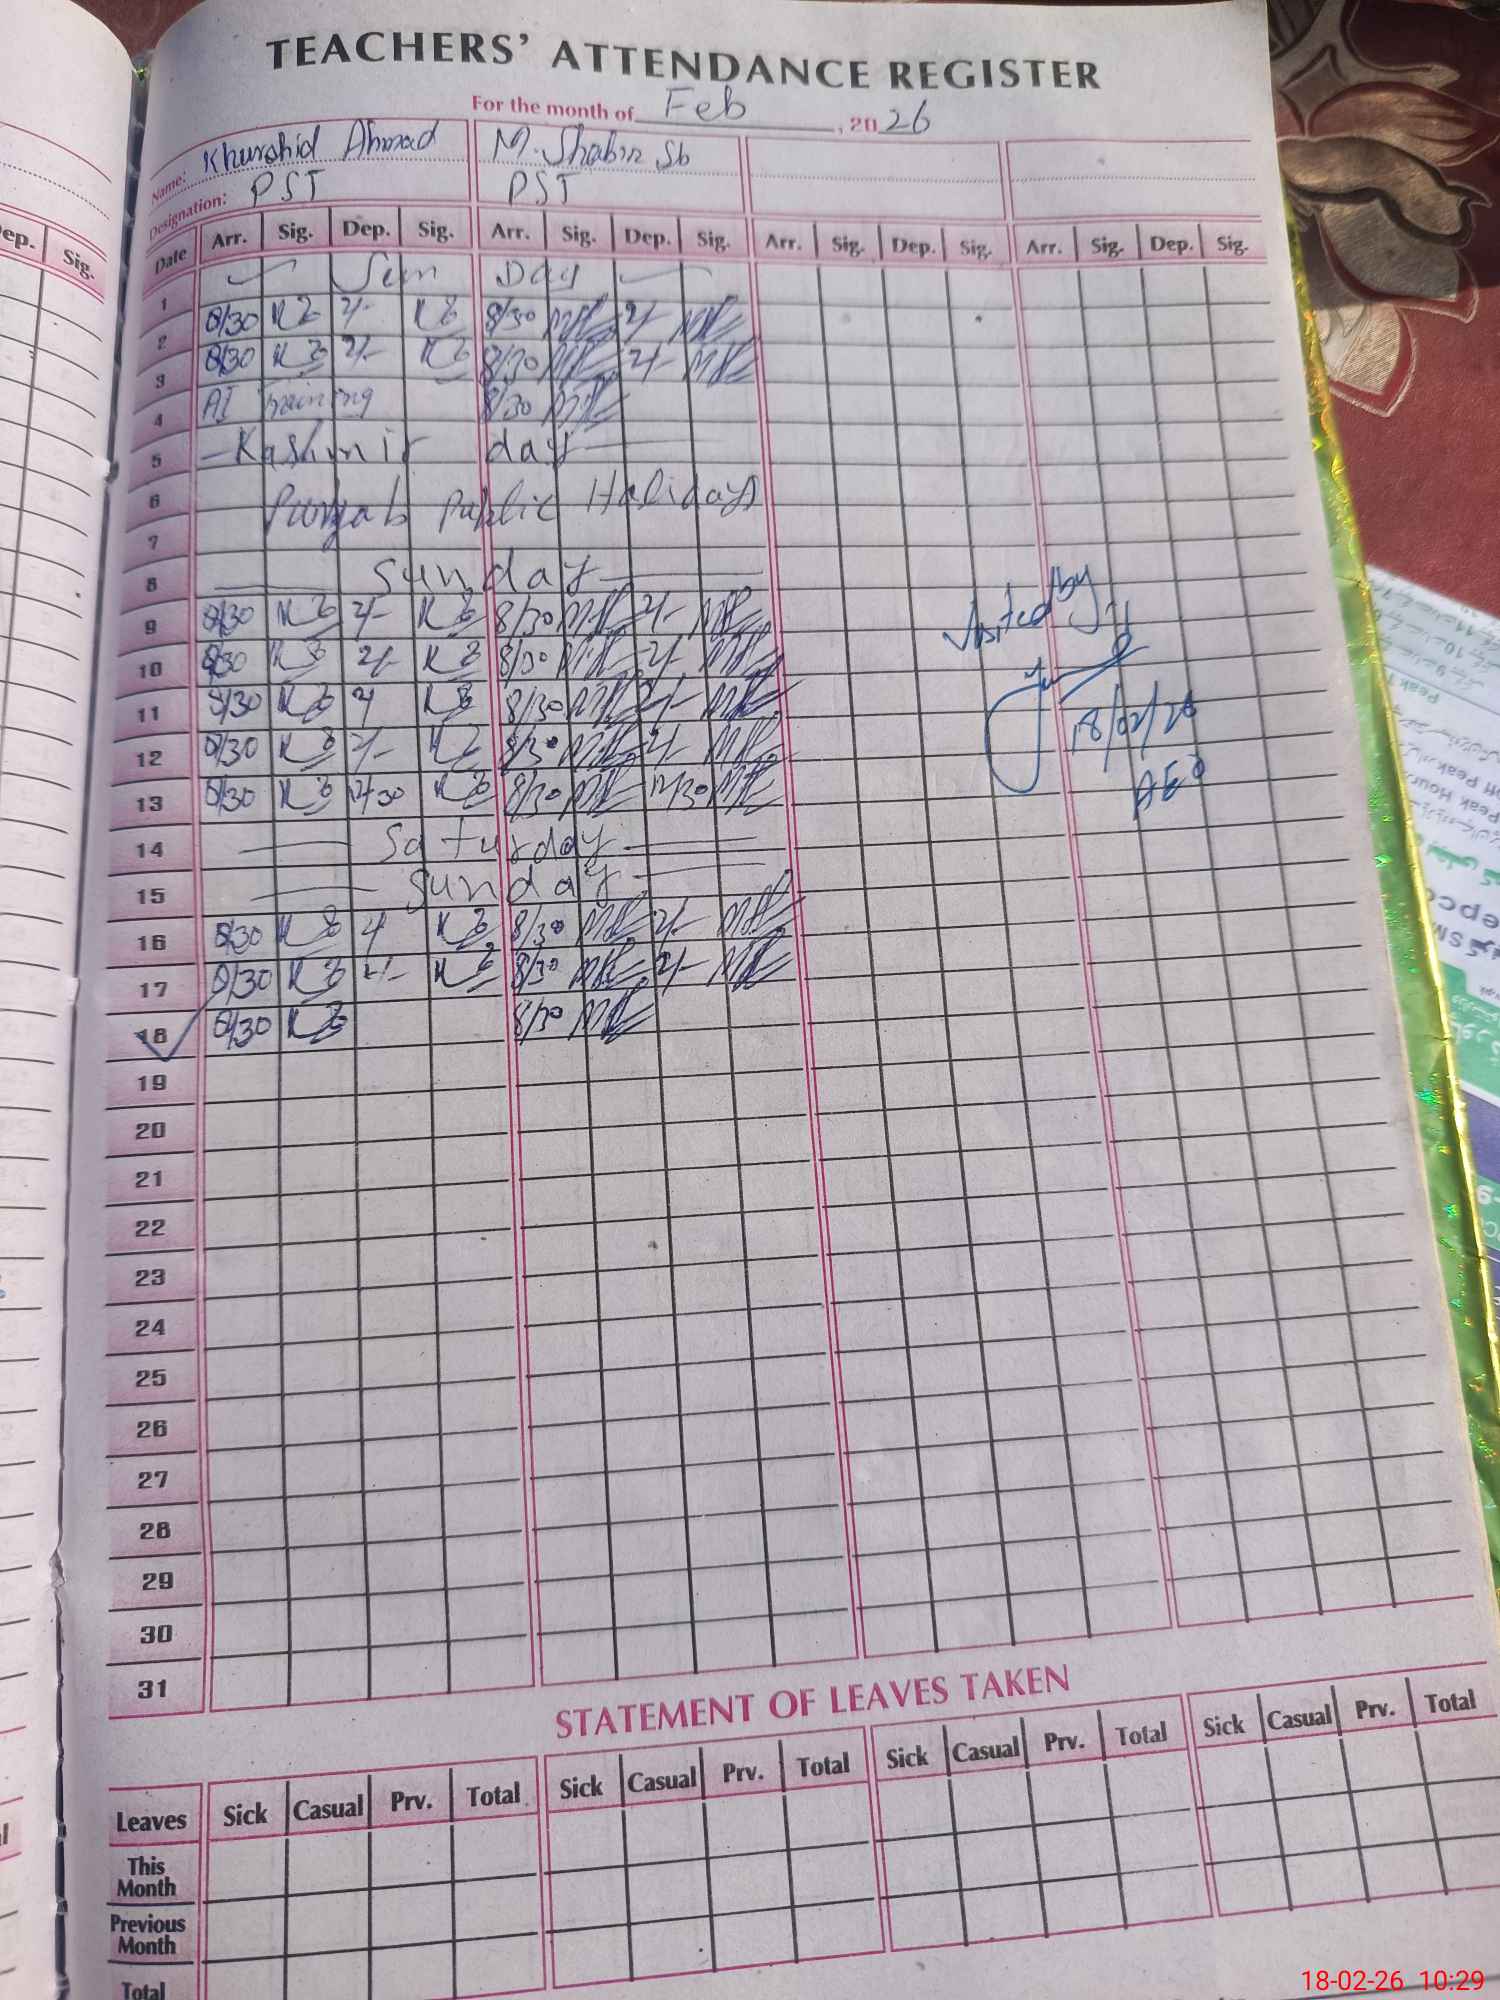 TEACHERS' ATTENDANCE REGISTER
For the month of Feb, 2026
Name: Khurshid Ahmad M. Shabir Sb
Designation: PST PST
Date Arr. Sig. Dep. Sig. Arr. Sig. Dep. Sig. Arr. Sig. Dep. Sig. Arr. Sig. Dep. Sig.
ep. Sig.
1 Sun Day
2 8/30 2/- 8/30 2/-
3 8/30 2/- 8/30 2/-
4 AI Training 8/30
5 Kashmir day
6 Punjab Public Holidays
7
8 Sunday
9 8/30 2/- 8/30 2/-
10 8/30 2/- 8/30 2/-
11 8/30 2/ 8/30 2/-
12 8/30 2/- 8/30 2/-
13 8/30 12/30 8/30 12/30
14 Saturday
15 Sunday
16 8/30 2/ 8/30 2/-
17 8/30 2/- 8/30 2/-
18 8/30 8/30
Visited by
18/02/26
AEO
19
20
21
22
23
24
25
26
27
28
29
30
31
STATEMENT OF LEAVES TAKEN
Leaves Sick Casual Prv. Total Sick Casual Prv. Total Sick Casual Prv. Total Sick Casual Prv. Total
This Month
Previous Month
Total
18-02-26 10:29